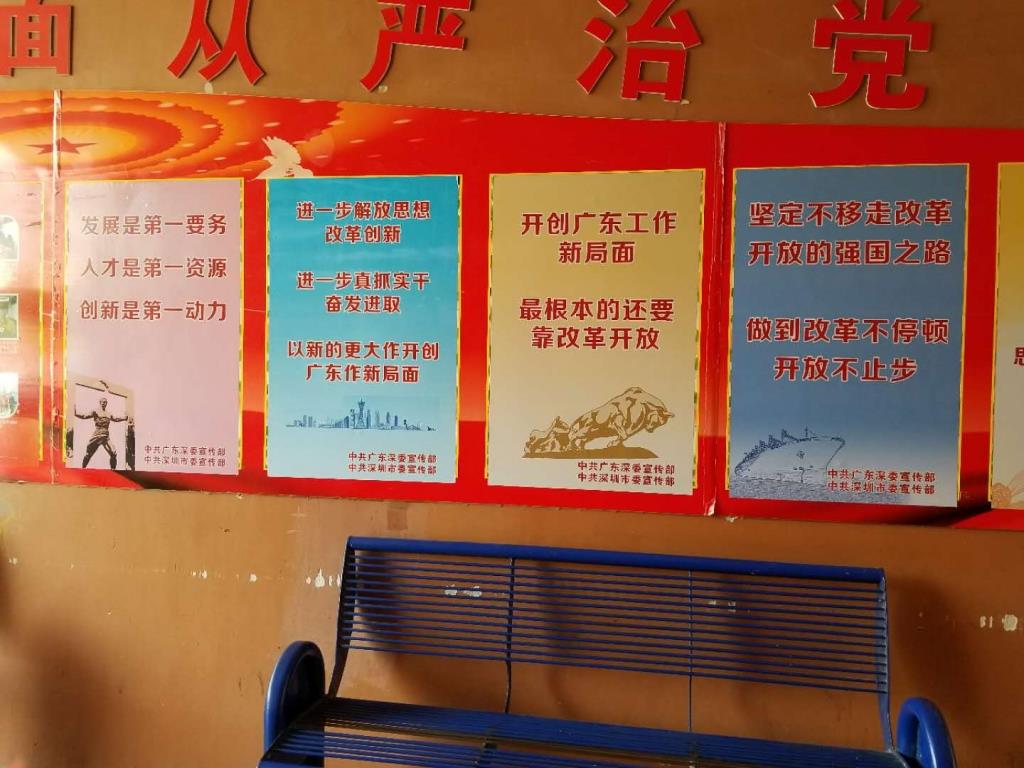 面从严治党
发展是第一要务
人才是第一资源
创新是第一动力
中共广东深委宣传部
中共深圳市委宣传部
进一步解放思想
改革创新
进一步真抓实干
奋发进取
以新的更大作开创
广东作新局面
中共广东深委宣传部
中共深圳市委宣传部
开创广东工作
新局面
最根本的还要
靠改革开放
中共广东深委宣传部
中共深圳市委宣传部
坚定不移走改革
开放的强国之路
做到改革不停顿
开放不止步
中共广东深委宣传部
中共深圳市委宣传部
思